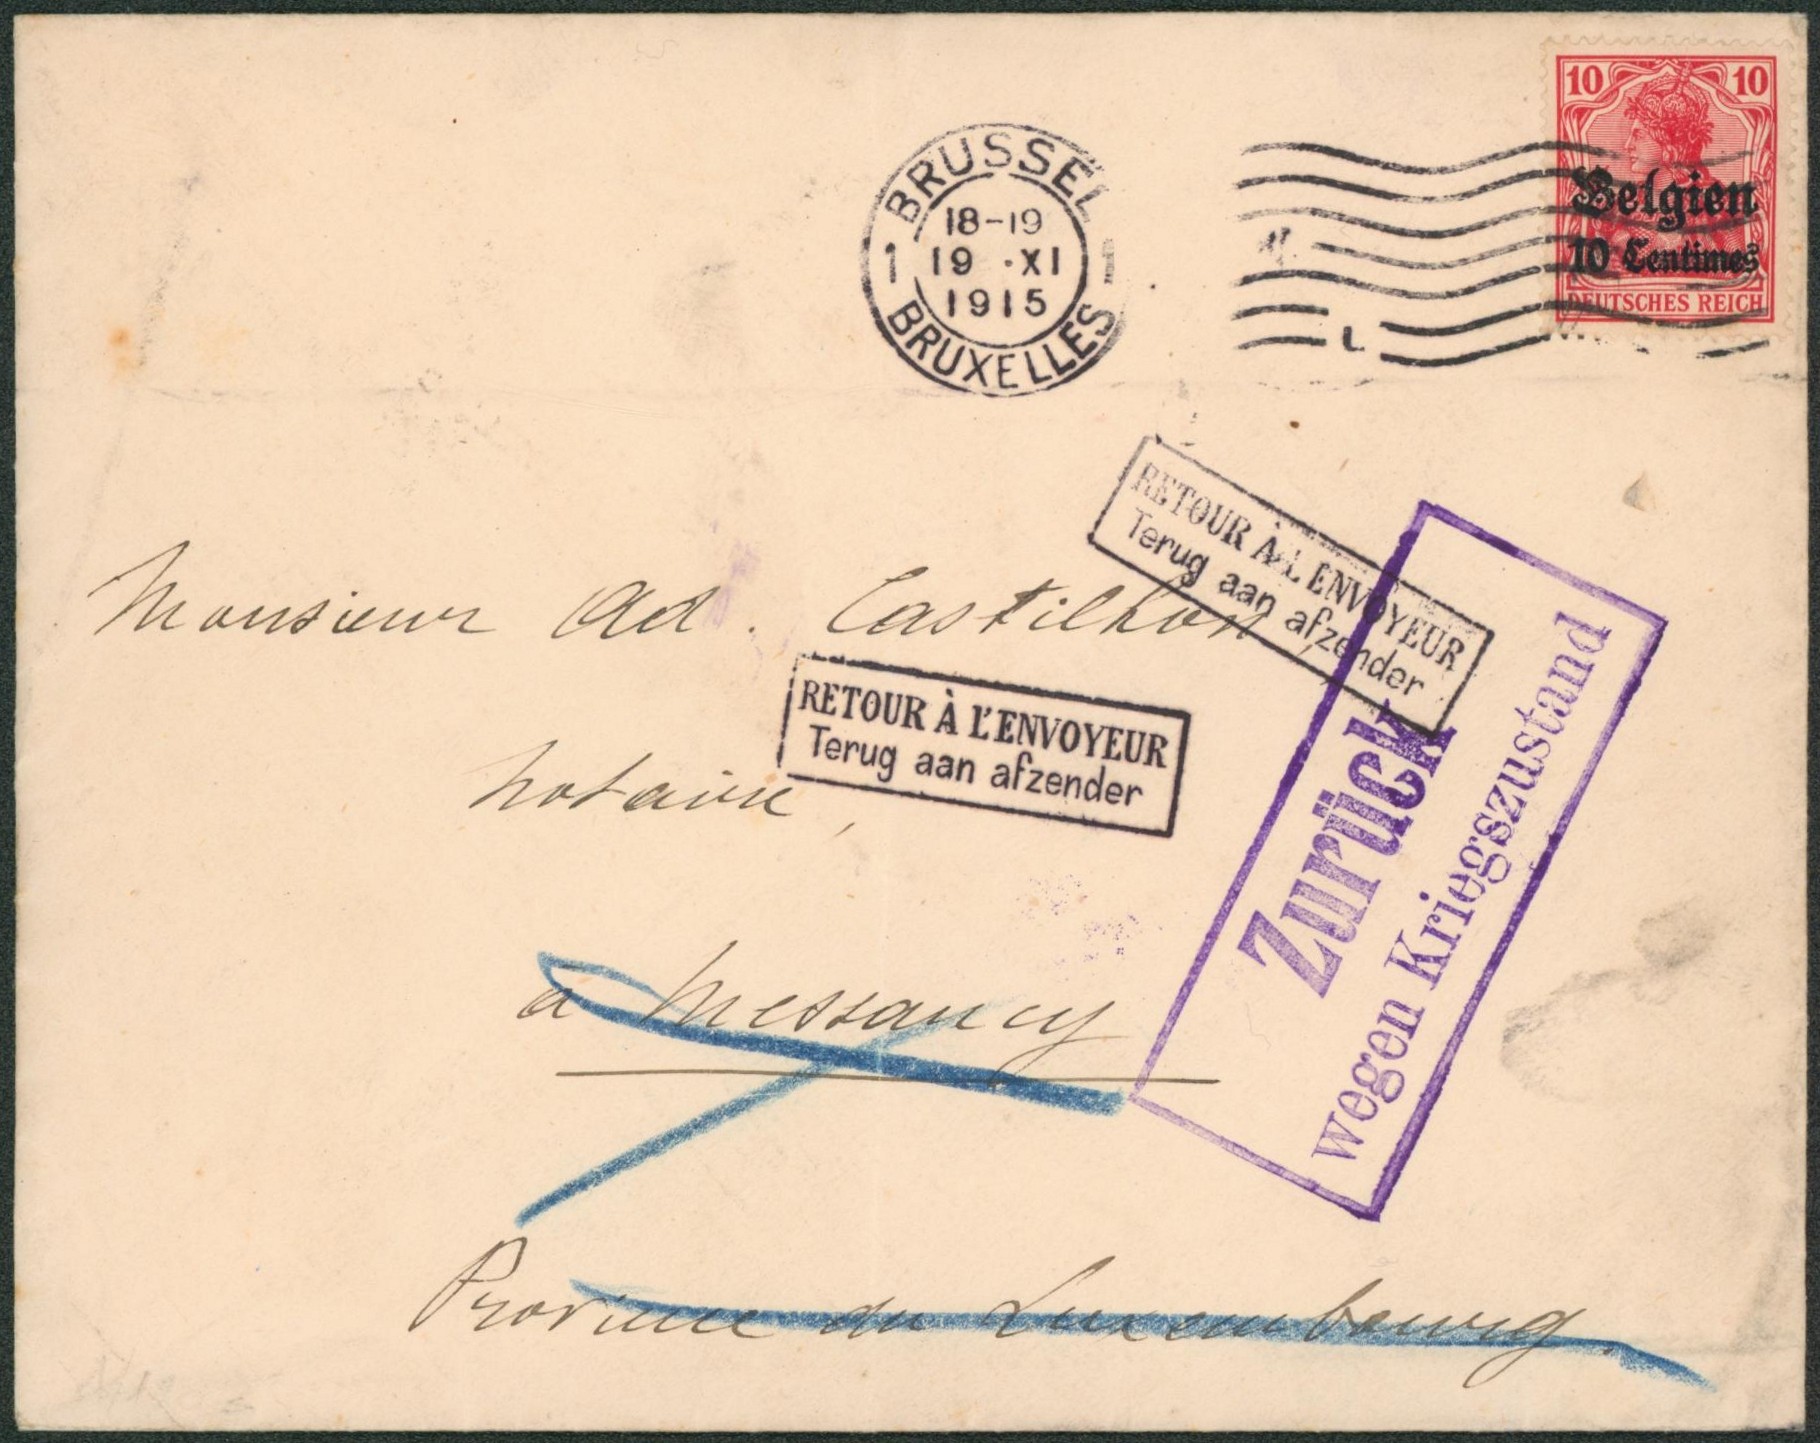 10 10
Belgien
10 Centimes
DEUTSCHES REICH
BRUSSEL
18-19
1 19 ·XI 1
1915
BRUXELLES
RETOUR À L'ENVOYEUR
Terug aan afzender
Monsieur Ad. Castilhon,
RETOUR À L'ENVOYEUR
Terug aan afzender
notaire,
Zurück
wegen Kriegszustand
à Messancy
Province du Luxembourg.